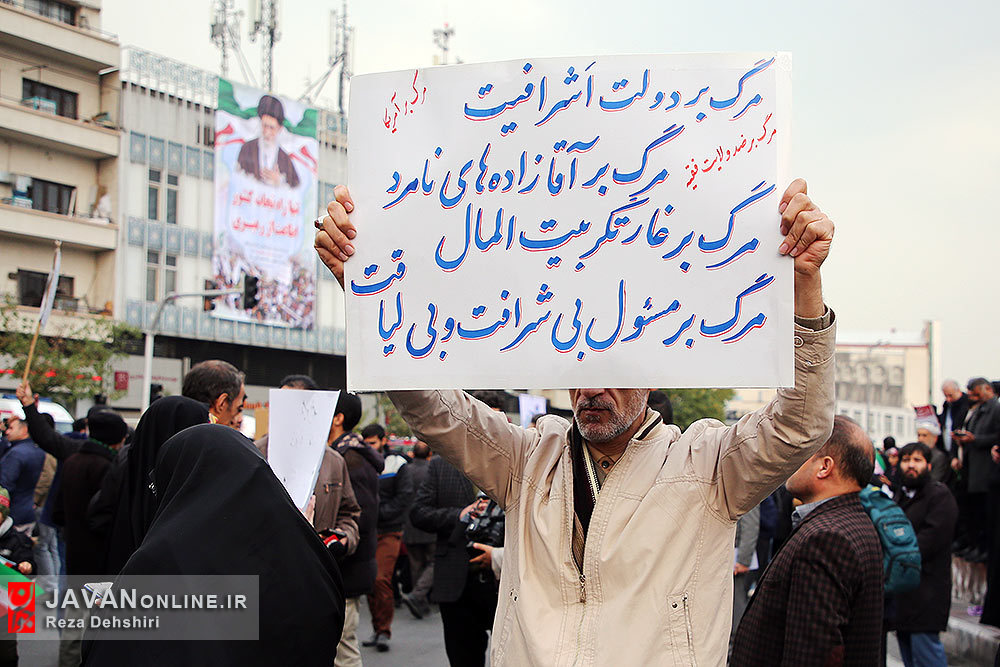 مرگ بر آمریکا
مرگ بر دولت اَشرافیت
مرگ بر ضد ولایت فقیه
مرگ بر آقازاده‌های نامرد
مرگ بر غارتگر بیت المال
مرگ بر مسئول بی شرافت و بی لیاقت
JAVANONLINE.IR
Reza Dehshiri